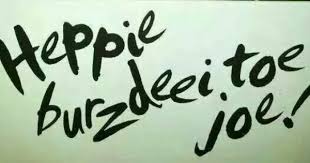 Heppie
burzdeei toe
joe!